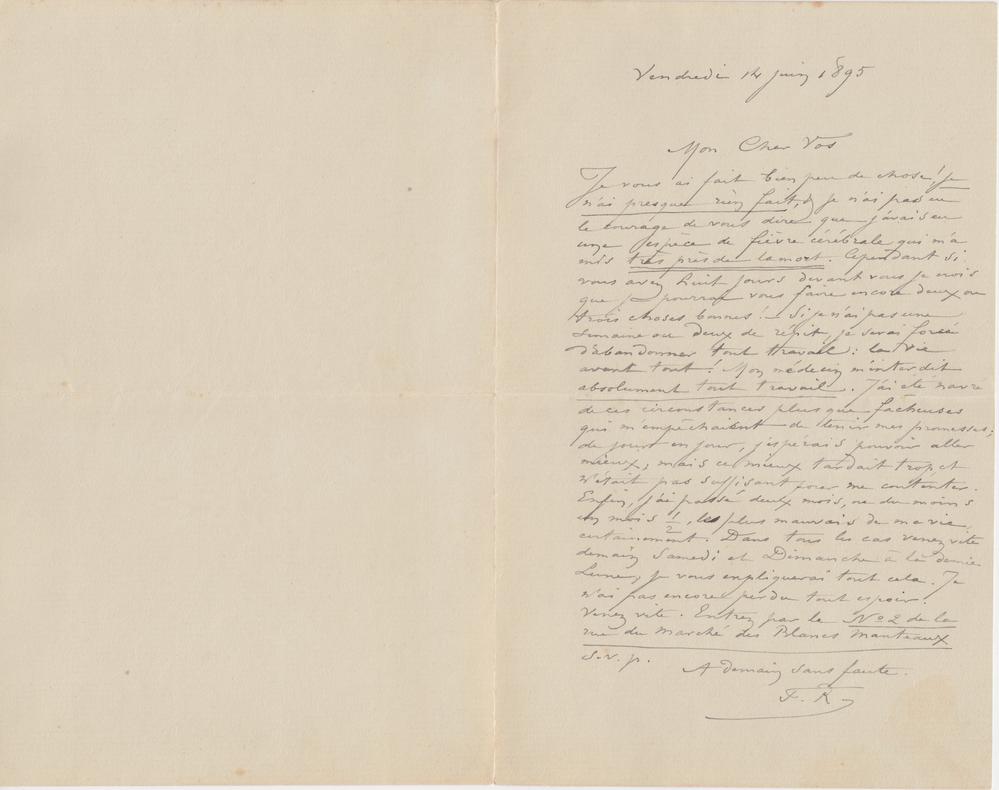 Vendredi 14 juin 1895
Mon Cher Vos
Je vous ai fait bien peu de chose! je
n'ai presque rien fait, & je n'ai pas eu
le courage de vous dire que j'avais eu
une espèce de fièvre cérébrale qui m'a
mis très près de la mort. Cependant si
vous avez huit jours devant vous je crois
que je pourrai vous faire encore deux ou
trois choses bonnes! - Si je n'ai pas une
semaine ou deux de répit, je serai forcé
d'abandonner tout travail: la vie
avant tout! Mon médecin m'interdit
absolument tout travail. J'ai été navré
de ces circonstances plus que facheuses
qui m'empêchaient de tenir mes promesses;
de jour en jour, j'espérais pouvoir aller
mieux, mais ce mieux tardait trop, et
n'était pas suffisant pour me contenter.
Enfin, j'ai passé deux mois, ou du moins
un mois 1/2, les plus mauvais de ma vie,
certainement. Dans tous les cas venez vite
demain Samedi et Dimanche à la demie
Lune, je vous expliquerai tout cela. Je
n'ai pas encore perdu tout espoir.
Venez vite. Entrez par le No 2 de la
rue du Marché des Blancs Manteaux
s.v.p. A demain sans faute.
F. R